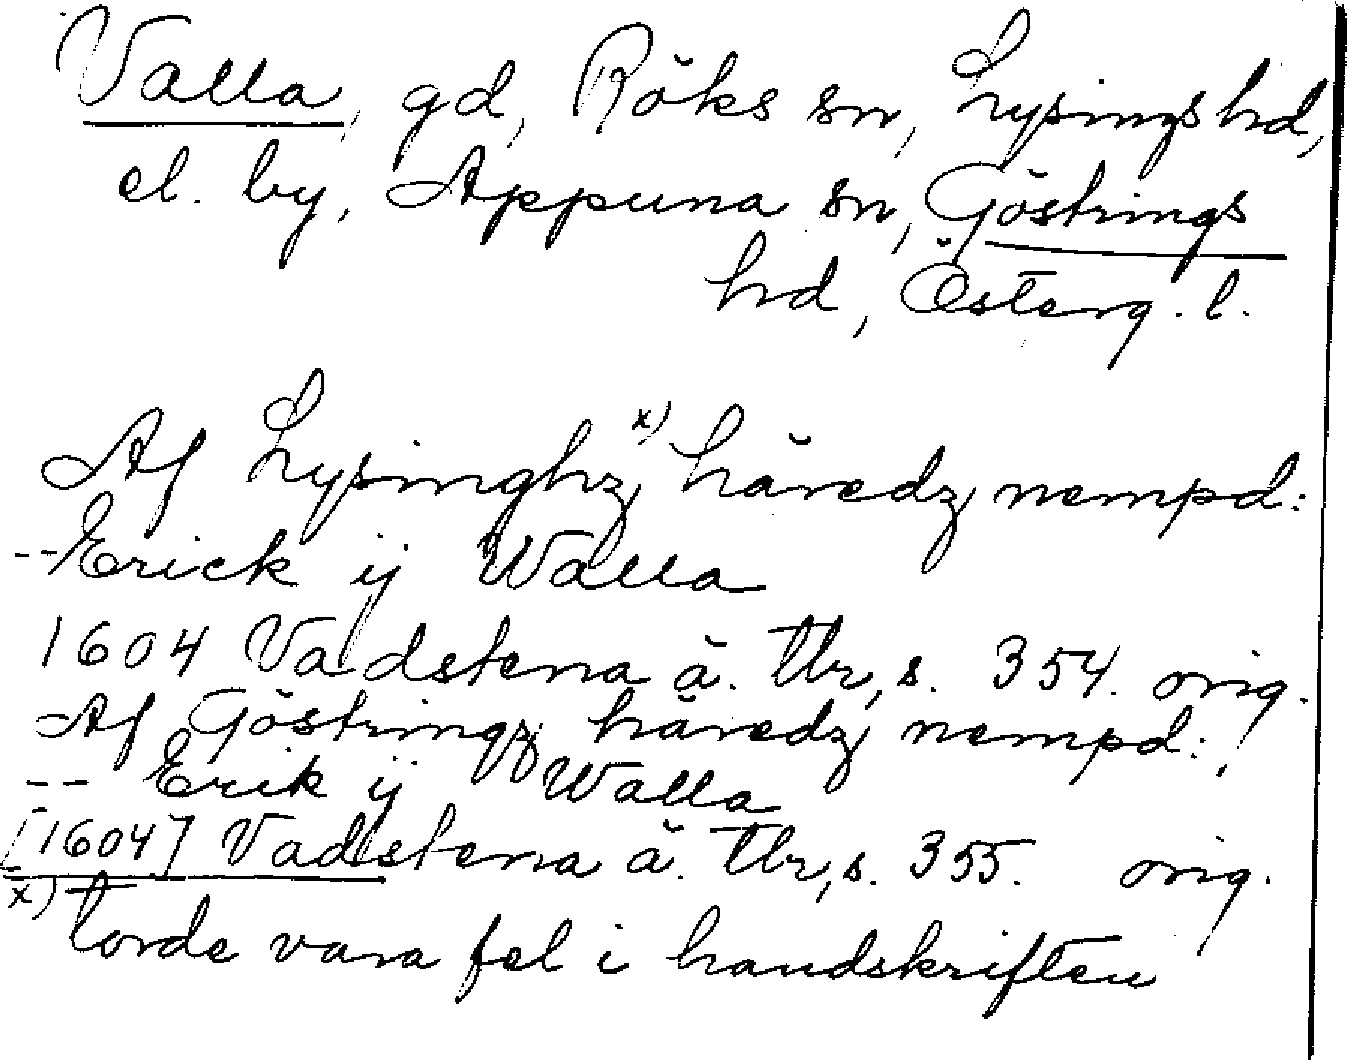 Valla, gd, Röks sn, Lysings hd,
el. by, Appuna sn, Göstrings
hd, Österg. l.
Af Lysinghz x) häredz nempd:
-- Erick ij Walla
1604 Vadstena ä. tbr, s. 354. orig.
Af Göstringz häredz nempd:!
-- Erik ij Walla
[1604] Vadstena ä. tbr, s. 355. orig.
x) torde vara fel i handskriften